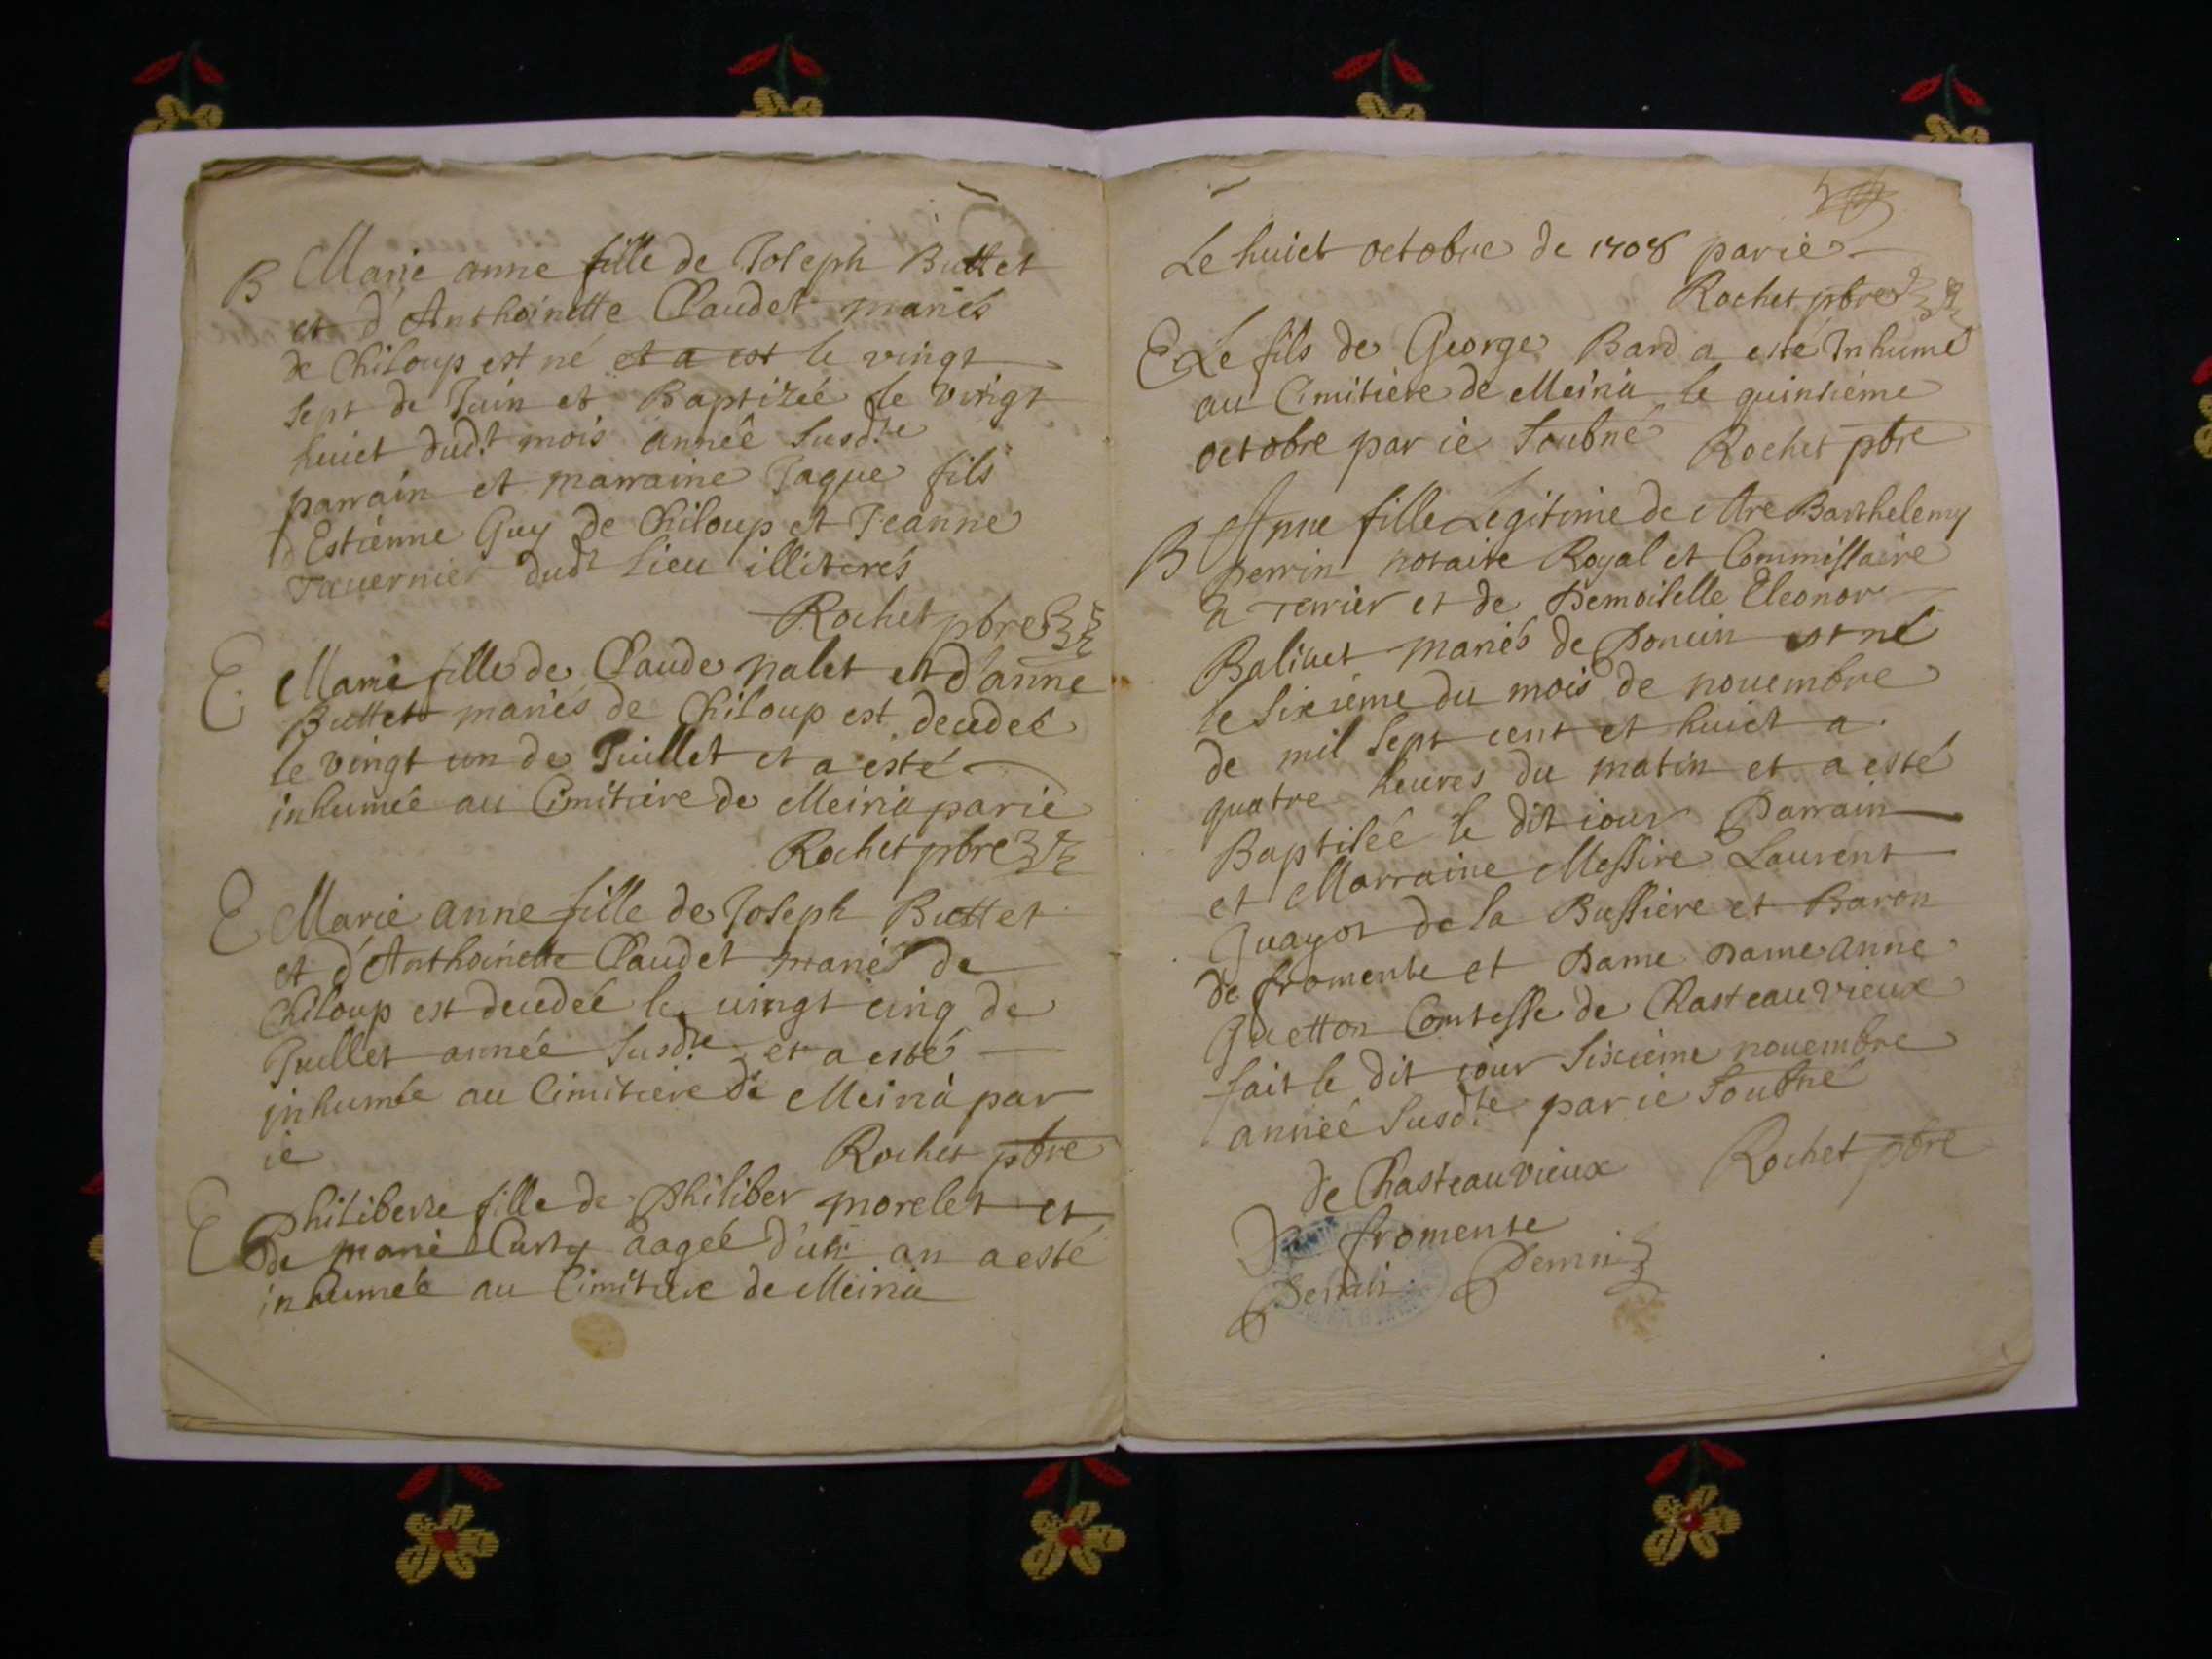 B Marie anne fille de Joseph Buttet
et d'Anthoinette Claudet mariés
de Chiloup est né et a est le vingt
sept de Juin et Baptizéé le vingt
huict dudt mois année susdte
parrain et marraine Jaque fils
d'Estienne Guy de Chiloup et Jeanne
Tavernier dudt lieu illiterés
Rochet pbre
E Marie fille de Claude nalet et d'anne
Buttet mariés de Chiloup est decedeé
le vingt un de Juillet et a esté
inhumée au Cimitiere de Meiria par ie
Rochet pbre
E Marie anne fille de Joseph Buttet
et d'Anthoinette Claudet mariés de
Chiloup est decedéé le vingt cinq de
Juillet année susdte et a esté
inhumée au Cimitiere de Meiria par
ie
Rochet pbre
E Philiberte fille de Philiber morelet et
de marie Curty aagéé d'un an a esté
inhumée au Cimitiere de Meiria
Le huict octobre de 1708 par ie
Rochet pbre
E Le fils de George Bard a esté Inhumé
au Cimitiere de Meiria le quinsiéme
octobre par ie soubné
Rochet pbre
B Anne fille Legitime de Mre Barthelemy
Perrin notaire Royal et Commissaire
a Terrier et de Demoiselle Eleonor
Balivet mariés de Doncin est né
le sixiéme du mois de novembre
de mil sept cent et huict a
quatre heures du matin et a esté
Baptiséé le dit iour Parrain
et Marraine Messire Laurent
Guayot de la Bussiere et Baron
de fromente et Dame Dame anne
Guetton Comtesse de Chasteauvieux
fait le dit iour sixiéme novembre
annéé susdte par ie soubné
de Chasteauvieux
Rochet pbre
fromente
Perrin